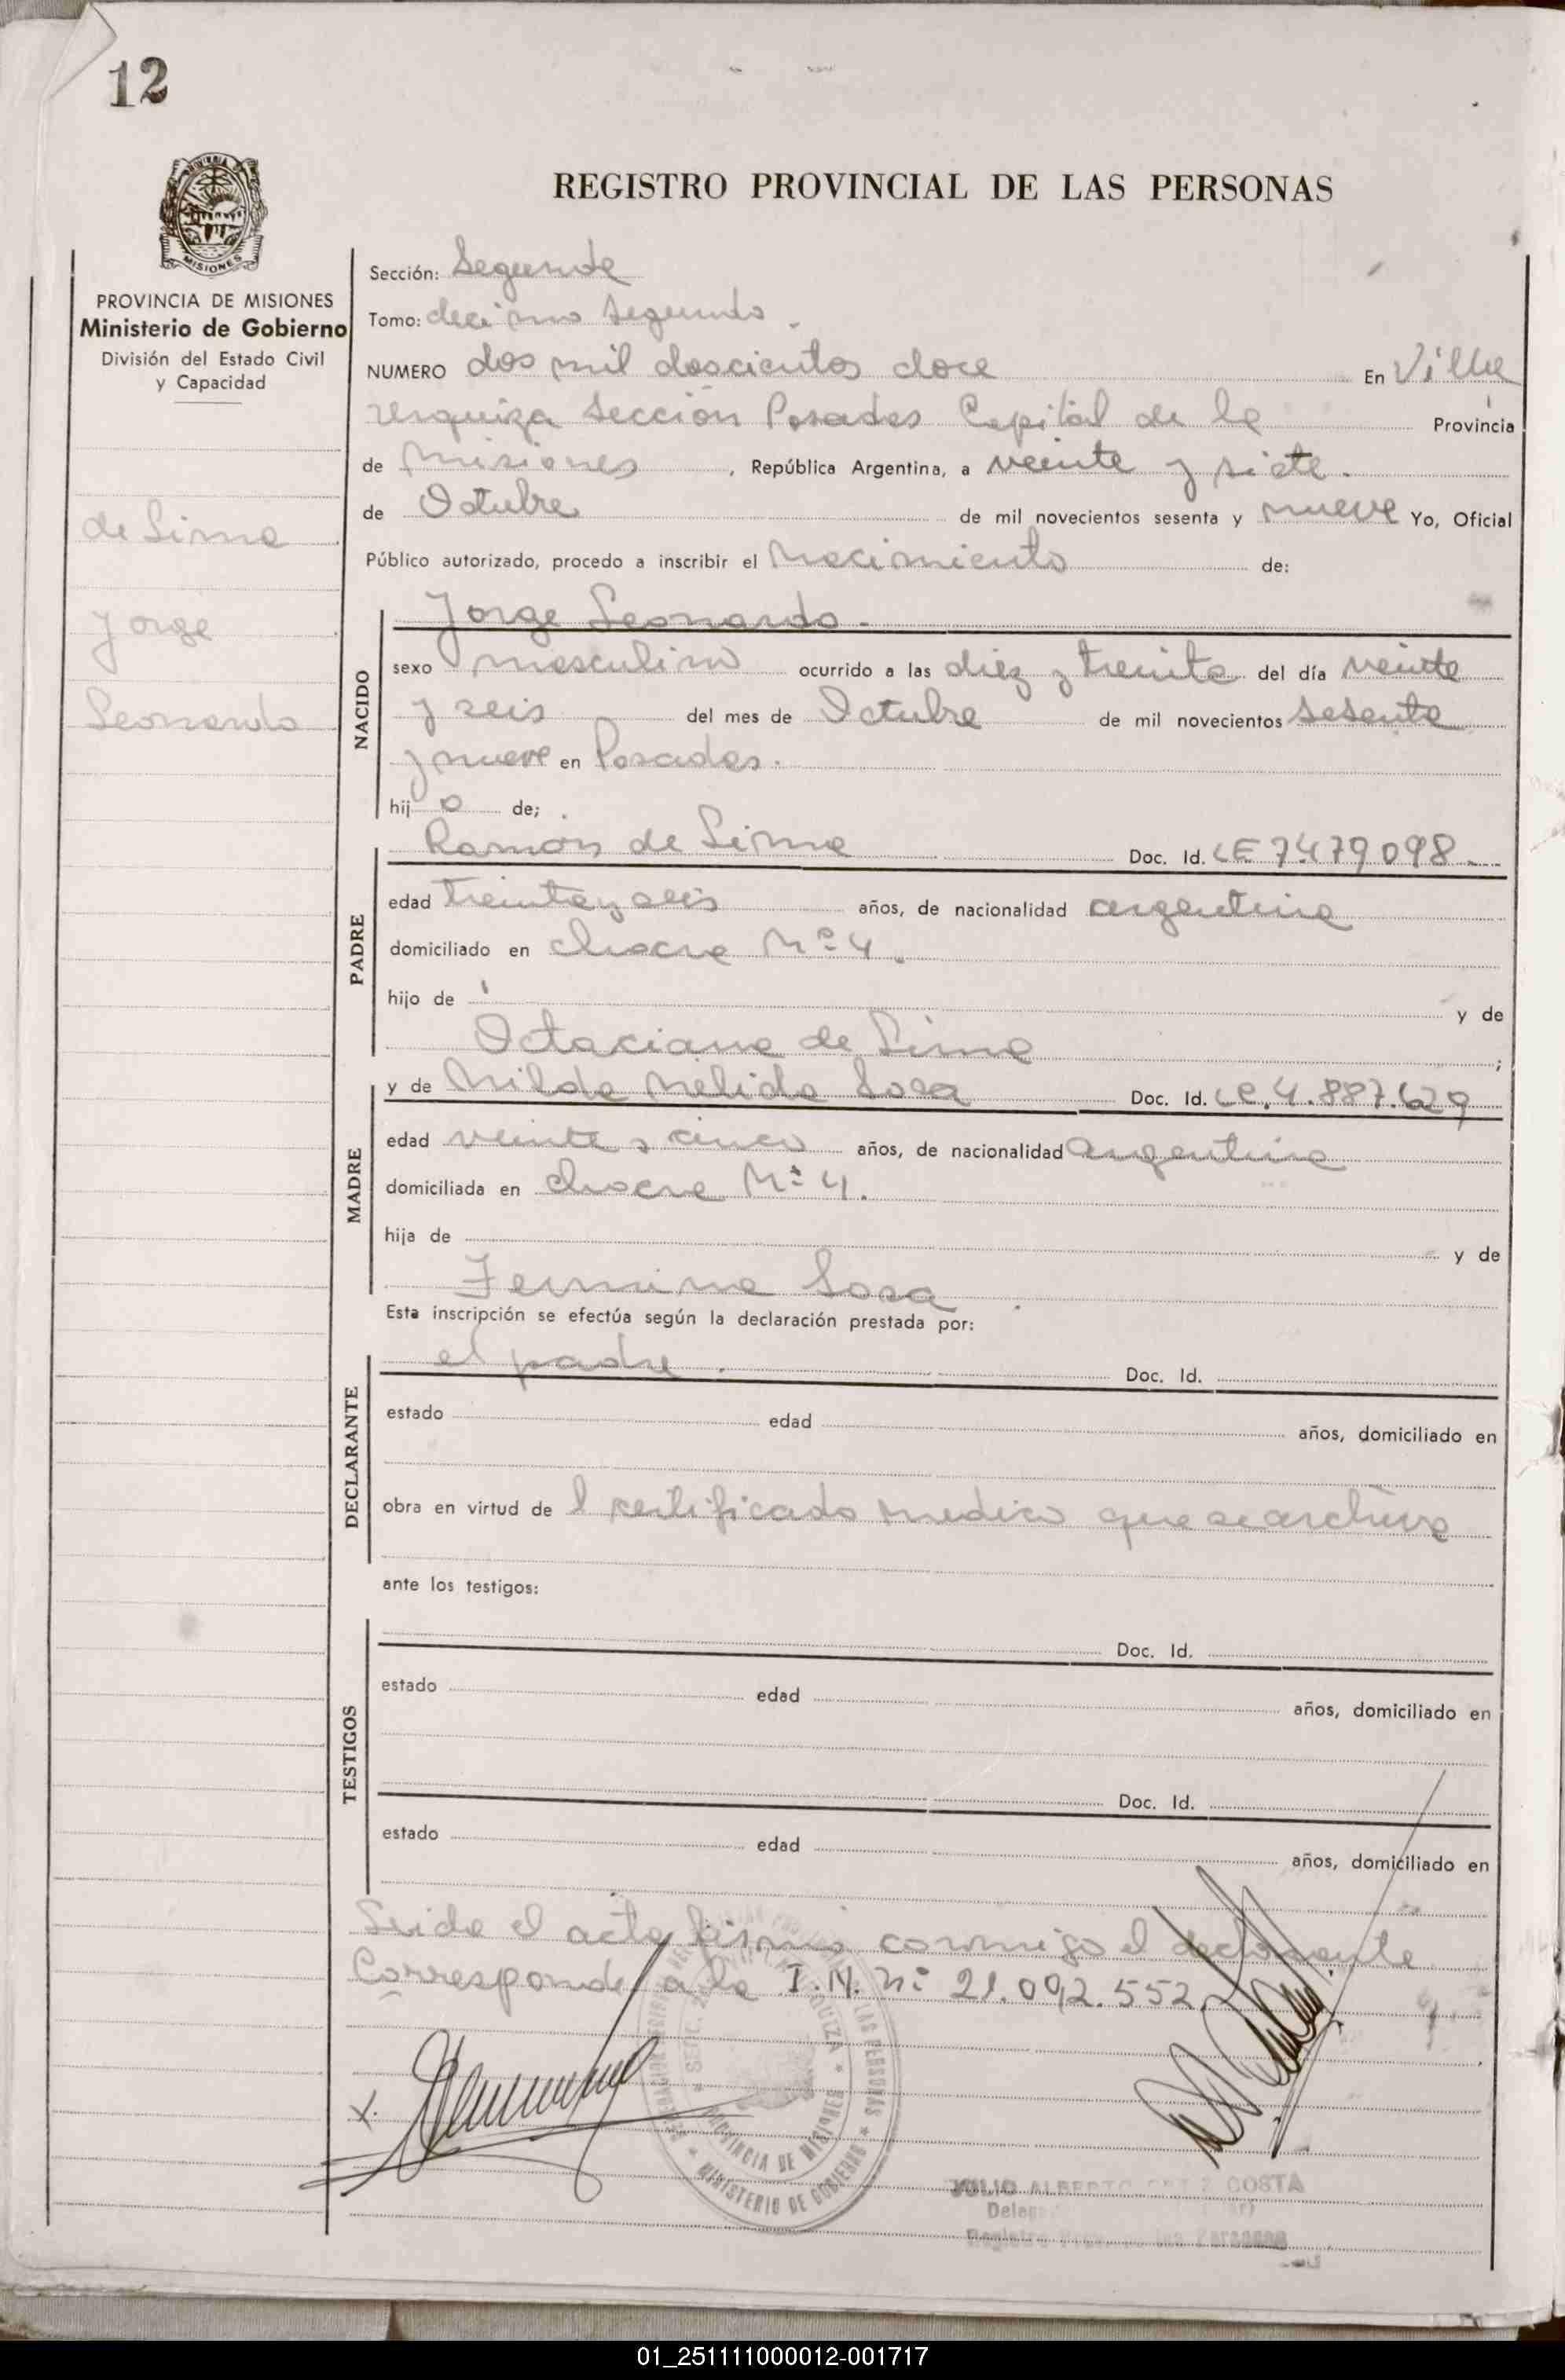 12
REGISTRO PROVINCIAL DE LAS PERSONAS
MISIONES
PROVINCIA DE MISIONES
Ministerio de Gobierno
División del Estado Civil
y Capacidad
de Lima
Jorge
Leonardo
Sección: Segunda
Tomo: decimo segundo.
NUMERO dos mil doscientos doce En Villa
Urquiza Sección Posadas Capital de la Provincia
de Misiones, República Argentina, a veinte y siete.
de Octubre de mil novecientos sesenta y nueve Yo, Oficial
Público autorizado, procedo a inscribir el Nacimiento de:
NACIDO
Jorge Leonardo.
sexo masculino ocurrido a las diez y treinta del día veinte
y seis del mes de Octubre de mil novecientos sesenta
y nueve en Posadas.
hijo de;
PADRE
Ramón de Lima Doc. Id. LE 7479098.
edad treinta y seis años, de nacionalidad argentina
domiciliado en chacra Nº 4.
hijo de y de
Octaciana de Lima ;
MADRE
y de Nilda Nelida Sosa Doc. Id. LC. 4.887.629
edad veinte y cinco años, de nacionalidad argentina
domiciliada en chacra Nº 4.
hija de y de
Fermina Sosa
Esta inscripción se efectúa según la declaración prestada por:
DECLARANTE
el padre. Doc. Id.
estado edad años, domiciliado en
obra en virtud de l certificado medico que se archiva
ante los testigos:
TESTIGOS
Doc. Id.
estado edad años, domiciliado en
Doc. Id.
estado edad años, domiciliado en
Leida el acta firma conmigo el declarante
Corresponde a la I.N. Nº 21.092.552.
x.
PROVINCIA DE MISIONES
MINISTERIO DE GOBIERNO
JULIO ALBERTO COSTA
01_251111000012-001717